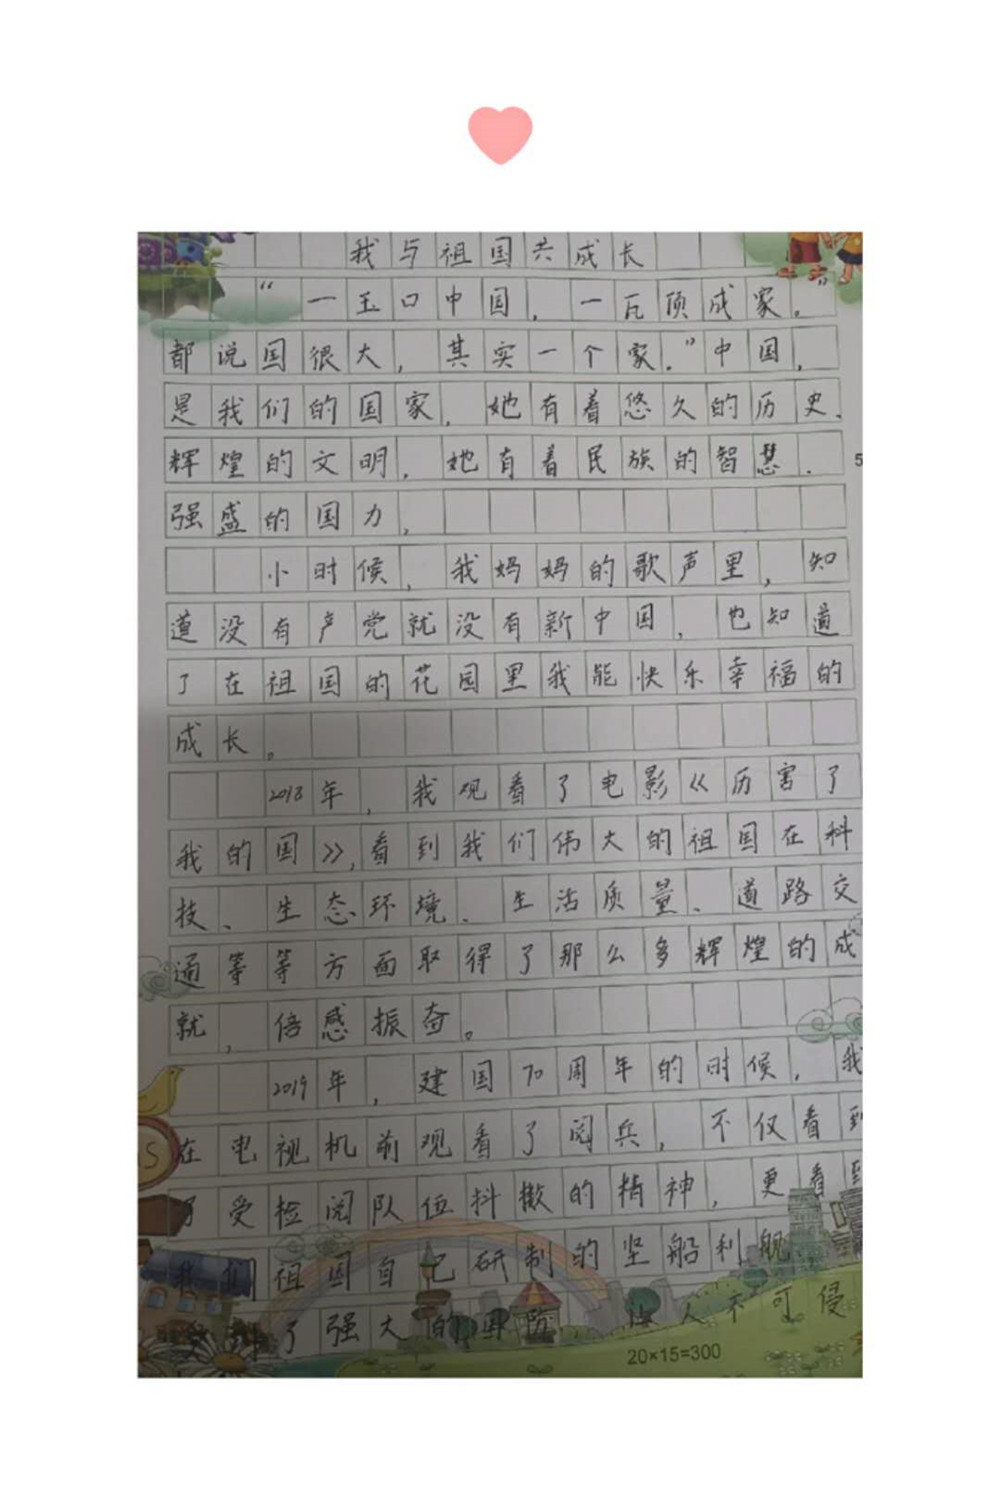 我与祖国共成长
“一玉口中国，一瓦顶成家，”
都说国很大，其实一个家.”中国，
是我们的国家，她有着悠久的历史、
辉煌的文明，她有着民族的智慧.
强盛的国力，
小时候，我妈妈的歌声里，知
道没有产党就没有新中国，也知道
了在祖国的花园里我能快乐幸福的
成长。
2018年，我观看了电影《历害了
我的国》，看到我们伟大的祖国在科
技、生态环境、生活质量、道路交
通等等方面取得了那么多辉煌的成
就，倍感振奋。
2019年，建国70周年的时候，我
在电视机前观看了阅兵，不仅看到
了受检阅队伍抖擞的精神，更看到
我们祖国自己研制的坚船利舰
了强大的国防 让人不可侵
20×15=300
5
S